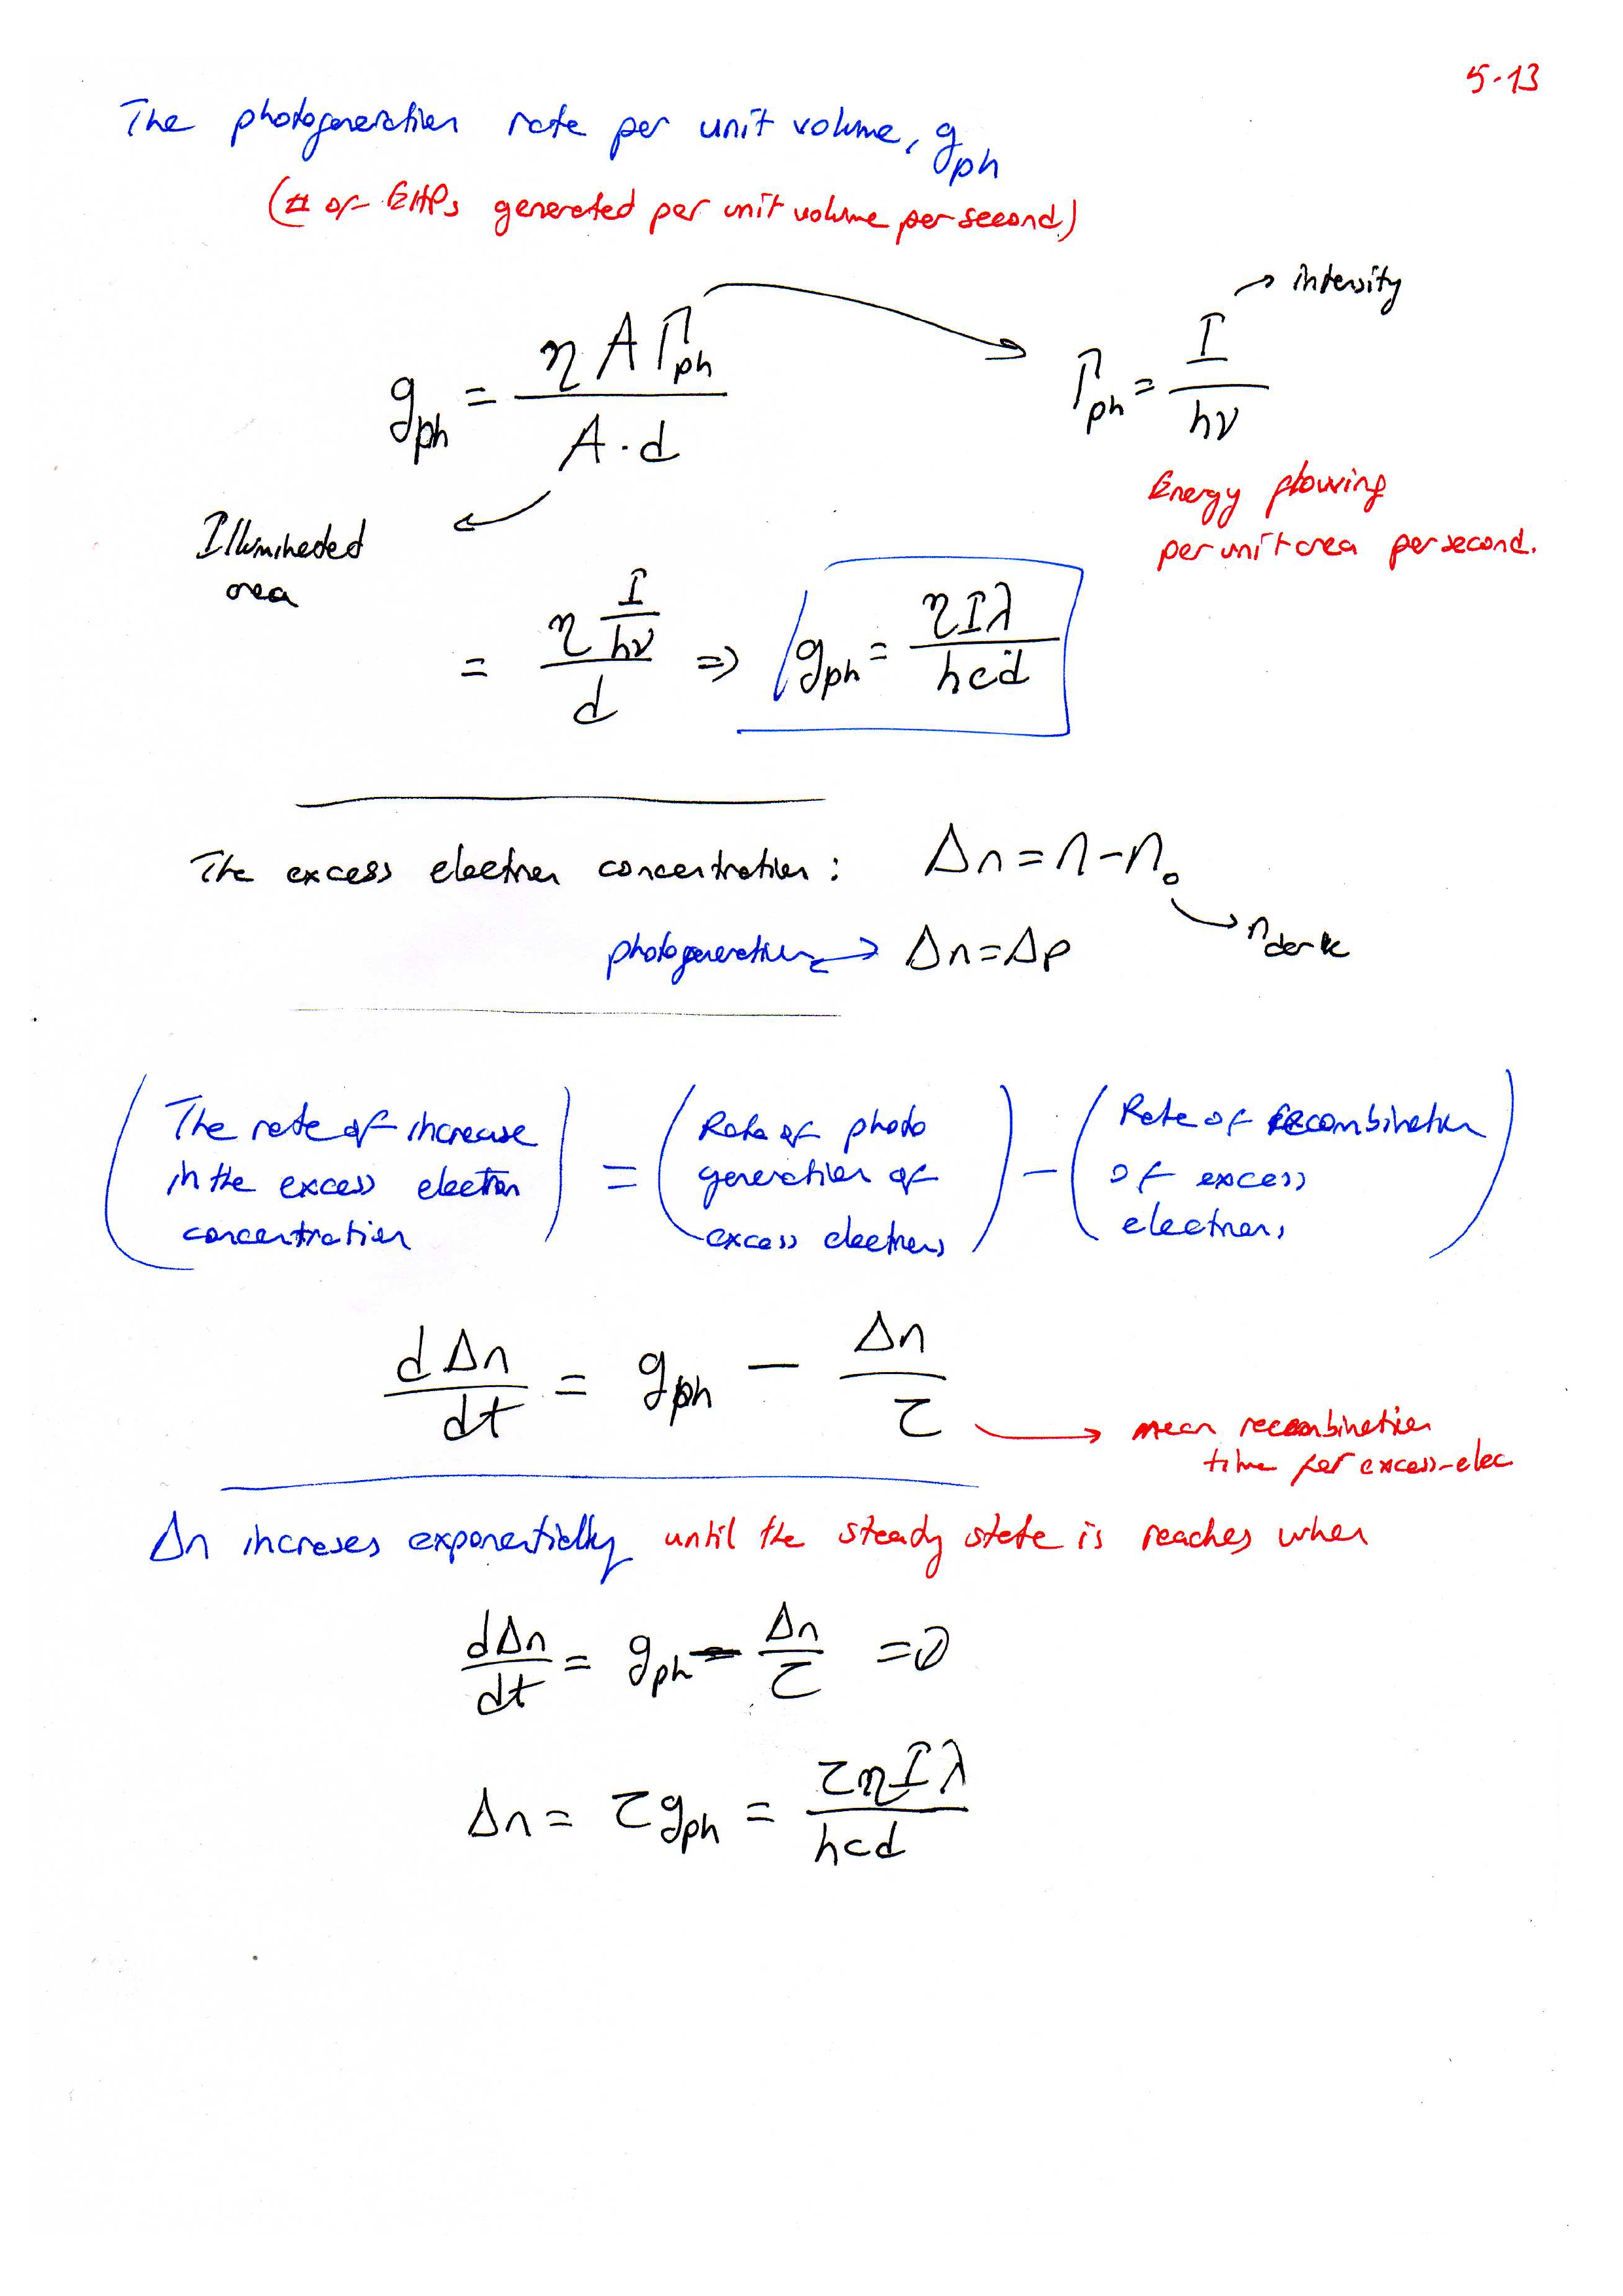 5-13
The photogeneration rate per unit volume, g_ph
(# of EHPs generated per unit volume per second)
→ intensity
g_ph = η A Γ_ph / A · d
Γ_ph = I / hν
Energy flowing
per unit area per second.
Illuminated
area
= η (I / hν) / d ⇒ g_ph = ηIλ / hcd
The excess electron concentration : Δn = n - n₀
→ n_dark
photogeneration → Δn = Δp
(The rate of increase in the excess electron concentration) = (Rate of photo generation of excess electrons) - (Rate of recombination of excess electrons)
dΔn / dt = g_ph - Δn / τ
→ mean recombination
time per excess-elec
Δn increses exponentially until the steady state is reaches when
dΔn / dt = g_ph - Δn / τ = 0
Δn = τg_ph = τηIλ / hcd